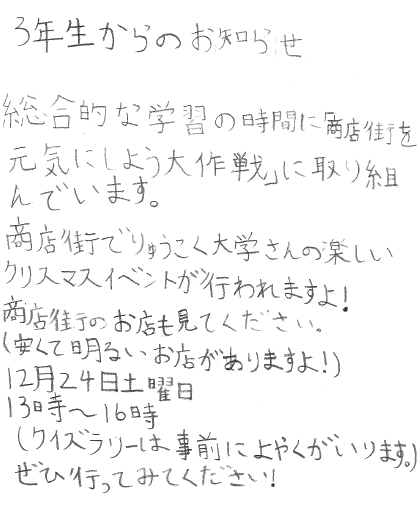 3年生からのお知らせ
総合的な学習の時間に「商店街を
元気にしよう大作戦」に取り組
んでいます。
商店街でりゅうこく大学さんの楽しい
クリスマスイベントが行われますよ！
商店街のお店も見てください。
（安くて明るいお店がありますよ！）
12月24日土曜日
13時〜16時
（クイズラリーは事前によやくがいります。）
ぜひ行ってみてください！